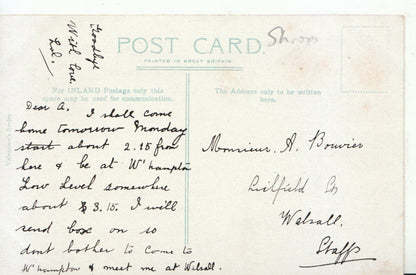 Goodbye
With love
Lol.
POST CARD.
PRINTED IN GREAT BRITAIN
Shrops
For INLAND Postage only this
space may be used for communication.
The Address only to be written
here.
Valentine's Series
Dear A. I shall come
home tomorrow Monday
start about 2.15 from
here & be at W'hampton
Low Level somewhere
about 3.15. I will
send box on so
dont bother to come to
W'hampton & meet me at Walsall.
Monsieur. A. Bouvier
Walsall.
Staffs